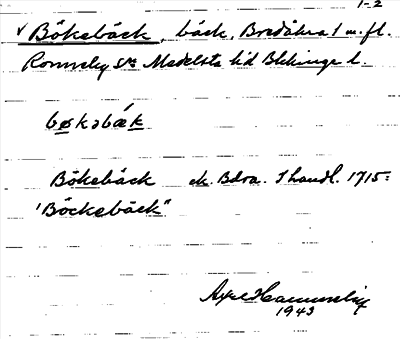 1-2
√ Bökebäck, bäck, Bredåkra 1 m. fl.
Ronneby sn Medelsta hd Blekinge l.
bøkəbǽk
Bökebäck ek. Bdra. Handl. 1715:
"Böckebäck"
1943